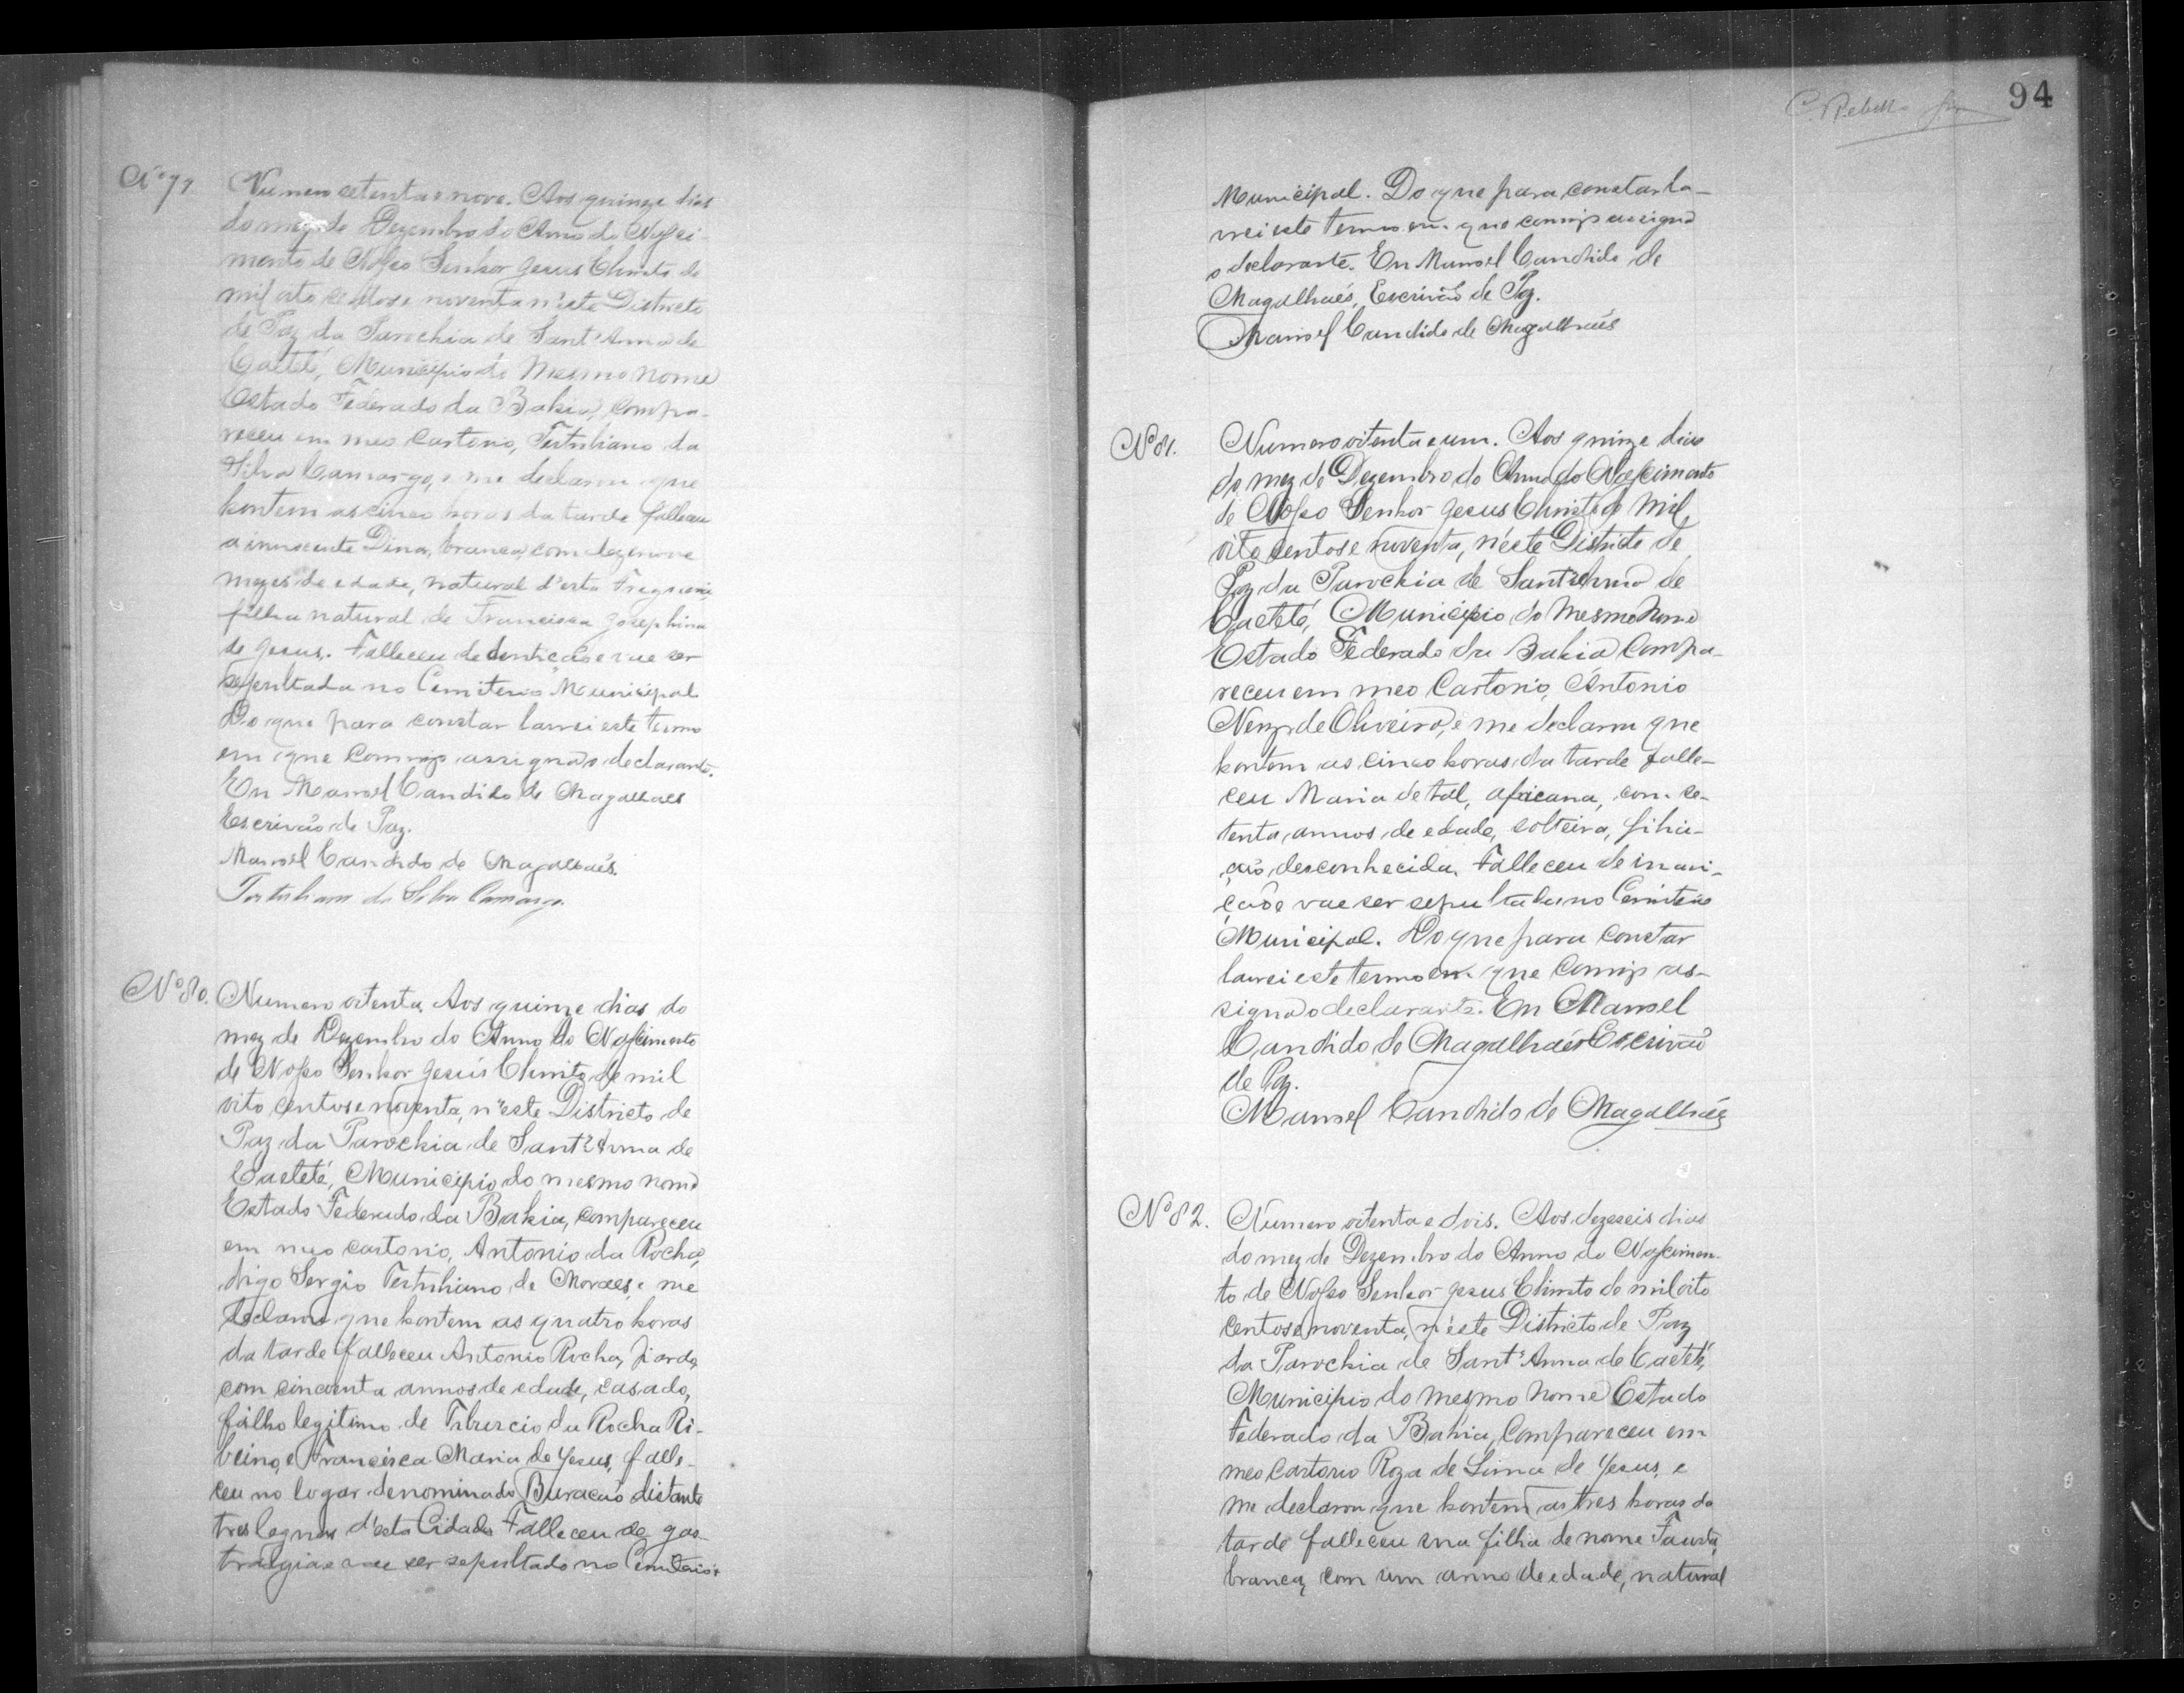 Nº 79. Numero setenta e nove. Aos quinze dias
do mez de Dezembro do Anno do Nasci-
mento de Nosso Senhor Jesus Christo de
mil oito centos e noventa n'este Districto
de Paz da Parochia de Sant'Anna de
Caeteté, Municipio do mesmo nome
Estado Federado da Bahia, compa-
receu em meo Cartorio, Tertuliano da
Silva Camargo, e me declarou que
hontem as cinco horas da tarde falleceu
a innocente Dina, branca, com dezenove
mezes de edade, natural d'esta Freguezia,
filha natural de Francisca Josephina
de Jesus. Falleceu de dentição e vae ser
sepultada no Cemiterio Municipal
Do que para constar lavrei este termo
em que comigo assigna o declarante.
Eu Manoel Candido de Magalhães
Escrivão de Paz.
Manoel Candido de Magalhães.
Tertuliano da Silva Camargo
Nº 80. Numero oitenta. Aos quinze dias do
mez de Dezembro do Anno do Nascimento
de Nosso Senhor Jesús Christo de mil
oito centos e noventa, n'este Districto de
Paz da Parochia de Sant'Anna de
Caeteté, Municipio do mesmo nome
Estado Federado da Bahia, compareceu
em meo cartorio, Antonio da Rocha,
digo Sergio Tertuliano de Moraes, e me
declarou que hontem as quatro horas
da tarde falleceu Antonio Rocha, pardo,
com cincoenta annos de edade, casado,
filho legitimo de Tiburcio da Rocha Ri-
beiro, e Francisca Maria de Jesus, falle-
ceu no logar denominado Buracão distante
tres legoas d'esta Cidade. Falleceu de gas-
tralgia e vae ser sepultado no Cemiterio
94
C. Rebello
Municipal. Do que para constar la-
vrei este termo em que comigo assigna
o declarante. Eu Manoel Candido de
Magalhaés, Escrivão de Paz.
Manoel Candido de Magalhaés
Nº 81. Numero oitenta e um. Aos quinze dias
do mez de Dezembro do Anno do Nascimento
de Nosso Senhor Jesus Christo de mil
oito centos e noventa, n'este Districto de
Paz da Parochia de Sant'Anna de
Caeteté, Municipio do mesmo nome
Estado Federado da Bahia compa-
receu em meo Cartorio, Antonio
Nery de Oliveira, e me declarou que
hontem as cinco horas da tarde falle-
ceu Maria de tal, africana, com se-
tenta annos de edade, solteira, filia-
ção desconhecida. Falleceu de inani-
ção e vae ser sepultada no Cemiterio
Municipal. Do que para constar
lavrei este termo em que comigo as-
signa o declarante. Eu Manoel
Candido de Magalhaés Escrivão
de Paz.
Manoel Candido de Magalhaés
Nº 82. Numero oitenta e dois. Aos dezeseis dias
do mez de Dezembro do Anno do Nascimen-
to de Nosso Senhor Jesus Christo de mil oito
centos e noventa, n'este Districto de Paz
da Parochia de Sant'Anna de Caeteté,
Municipio do mesmo nome Estado
Federado da Bahia, compareceu em
meo Cartorio Roza de Lima de Jesus, e
me declarou que hontem as tres horas da
tarde falleceu sua filha de nome Fausta,
branca, com um anno de edade, natural